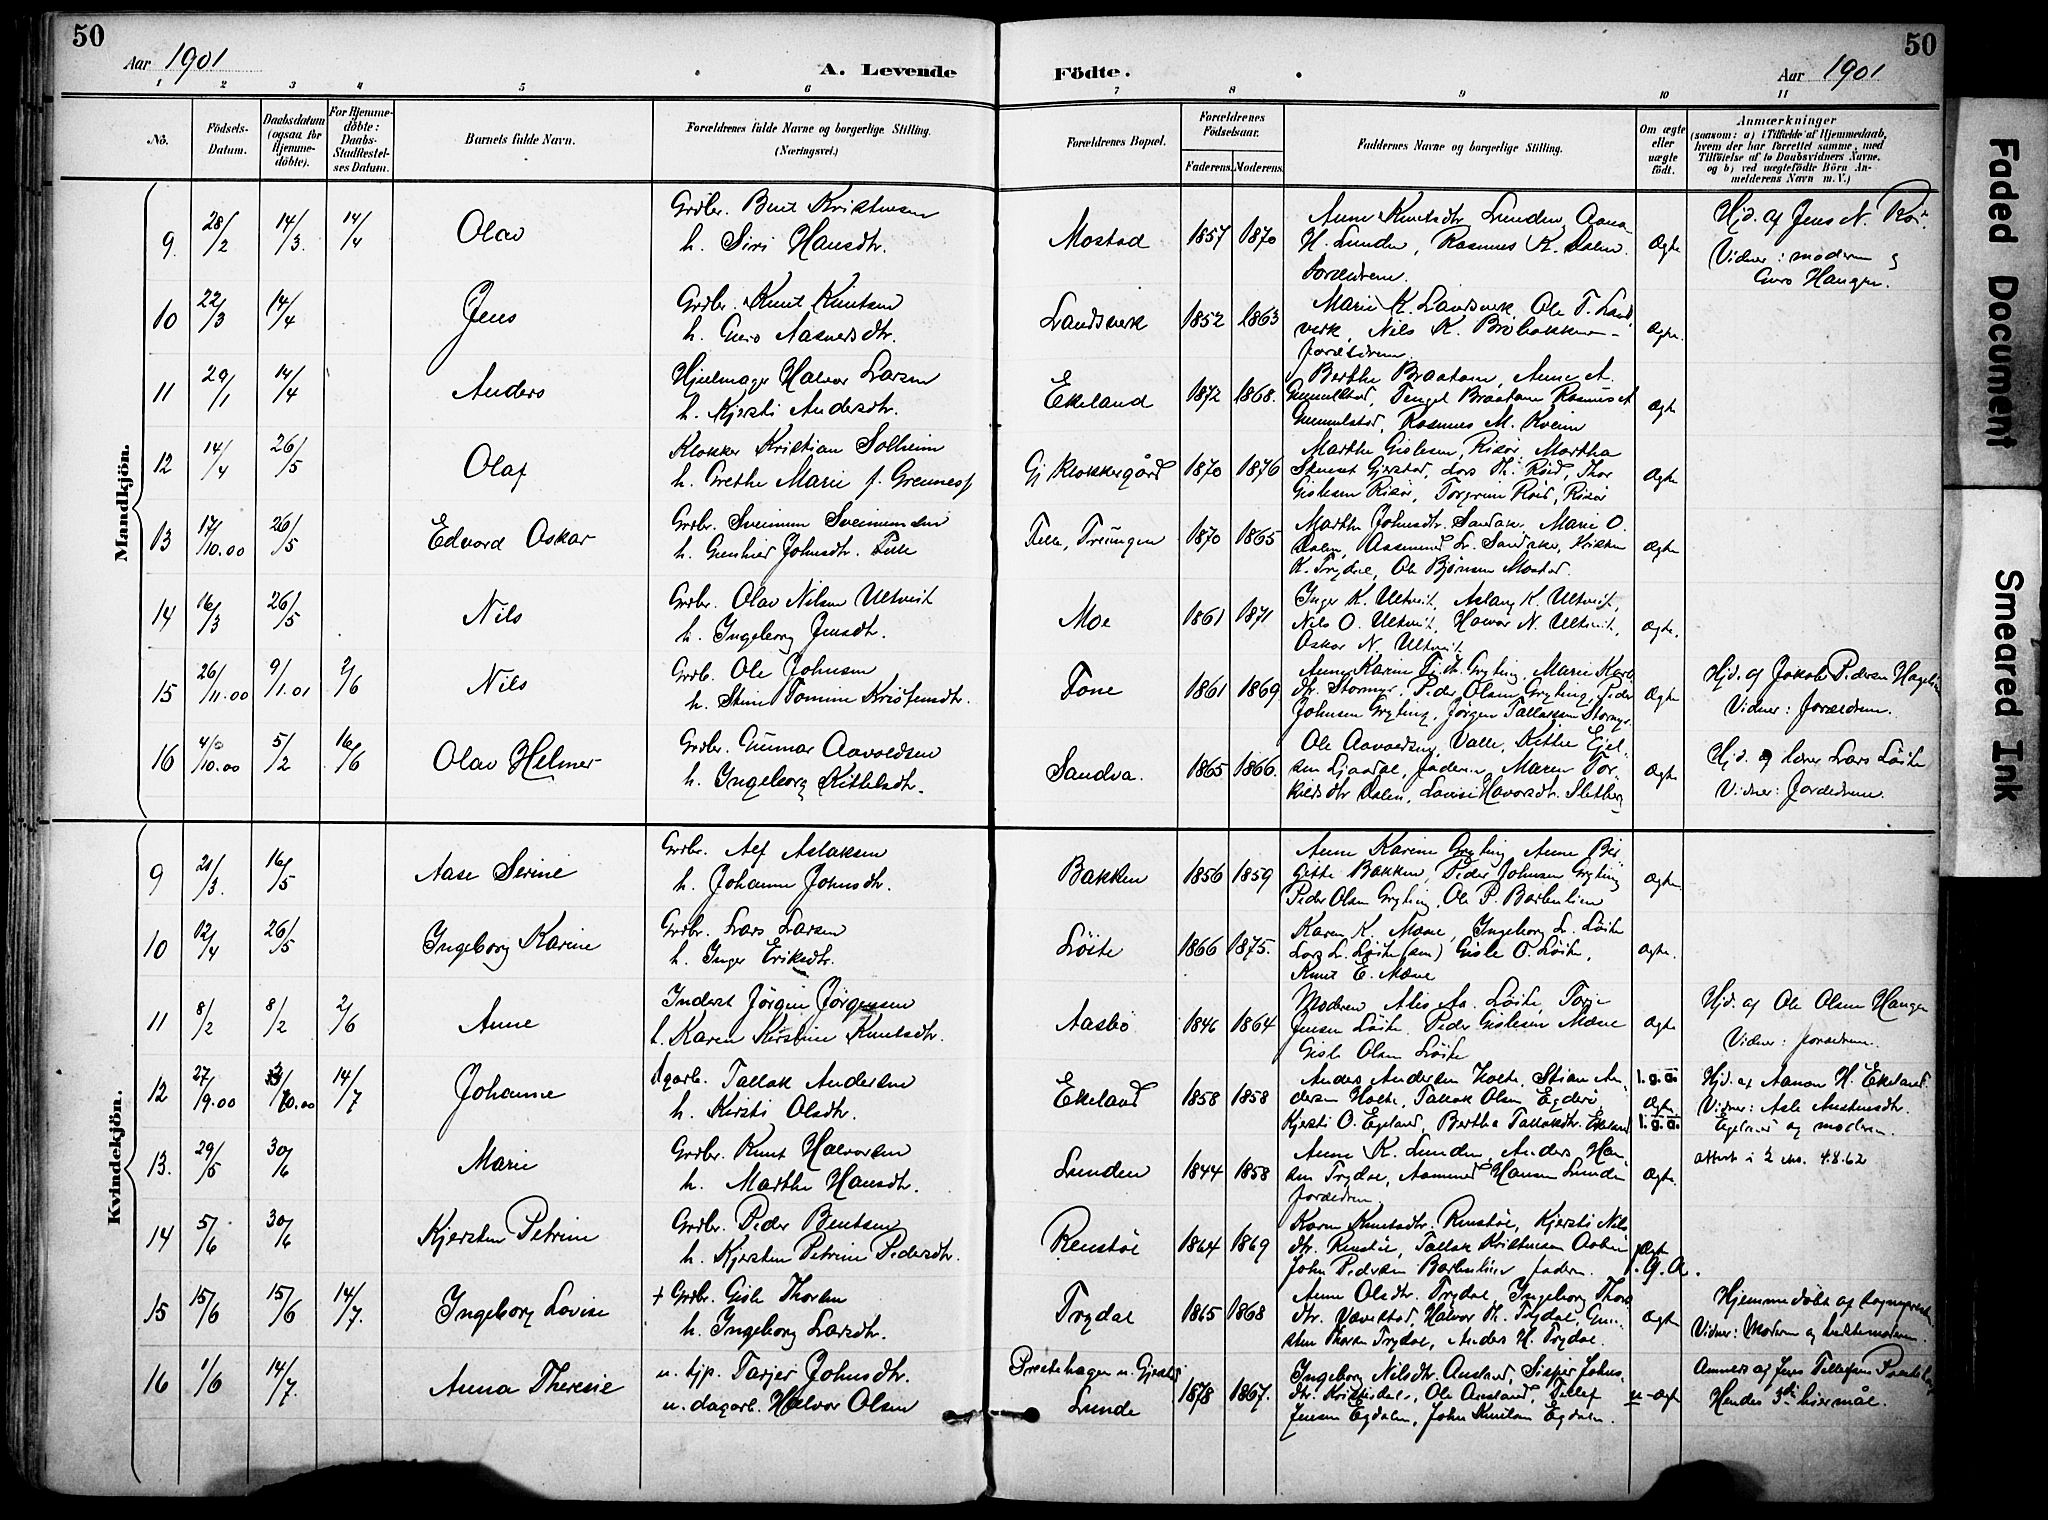 50
Aar 1901
A. Levende
Födte.
Aar 1901
50
1 2 3 4 5 6 7 8 9 10 11
No.
Födsels-Datum.
Daabsdatum (ogsaa for Hjemme-döbte).
For Hjemme-döbte: Daabs-Stadfæstel-ses Datum.
Barnets fulde Navn.
Forældrenes fulde Navne og borgerlige Stilling. (Næringsvei.)
Forældrenes Bopæl.
Forældrenes Födselsaar.
Faderens. Moderens.
Faddernes Navne og borgerlige Stilling.
Om ægte eller uægte födt.
Anmærkninger
(saasom: a) i Tilfælde af Hjemmedaab, hvem der har forrettet samme, med Tilföielse af to Daabsvidners Navne. og b) ved uægtefödte Börn An-melderens Navn m. V.)
Mandkjön.
9. 28/2 14/3. 14/4 Olav
Grdbr. Bent Kristensen
h. Siri Hansdtr.
Mostad 1857 1870
Anne Knutsdtr. Lunden,
H. Lunden, Rasmus K. Dalen
Forældrene
Ægte
Hjd. af Jens N.
Vidner: moderen og
Guro Haugen.
10 22/3 14/4 Jens
Grdbr. Knut Knutsen
h. Guro Aasmundsdtr.
Landsverk 1852 1863
Marie K. Landsverk, Ole T. Land-
verk, Nils K. Brobakken
forældrene
Ægte.
11 29/1 14/4 Anders
Hjulmager Halvor Larsen
h. Kjersti Andersdtr.
Ekeland 1872 1868.
Berthe Braaten, Anne A.
Gummelstad, Tengel Braaten Rasmus A
Gummelstad, Rasmus M. Kveim
Ægte
12 14/4 26/5 Olaf
Klokker Kristian Solheim
h. Grethe Marie f. Grennes
Gj Klokkergård 1870 1876
Marthe Gislesen, Risör, Martha
Gjerstad, Lars Th. Röd, Thor
Gislesen Risör, Torgrim Röd, Risör
Ægte
13 17/10.00 26/5 Edvard Oskar
Grdbr. Sveinum Sveinumsen
h. Gunhild Johnsdtr. Felle
Felle, Treungen 1870 1865
Marthe Johnsdtr. Sandaker, Marie O.
Dalen, Aasmund L. Sandaker, Kristen
K. Trydal, Ole Bjørnsen Mostad.
Ægte
14 16/3 26/5 Nils
Grdbr. Olav Nilsen Ultveit
h. Ingeborg Jensdtr.
Moe 1861 1871
Inger K. Ultveit, Aslaug K. Ultveit,
Nils O. Ultveit, Halvor N. Ultveit,
Oskar N. Ultveit
Ægte.
15 26/11.00 9/1.01 2/6 Nils
Grdb. Ole Johnsen
h. Stine Tomine Kristensdtr.
Tone 1861 1869
Anne Karine Gryting, Marie
dtr. Stormyr, Peder Olsen Gryting, Peder
Johnsen Gryting, Jørgen Tallaksen Stormyr
Ægte
Hjd. af Jakob Pedersen
Vidner: forældrene.
16 4/10.00 5/2 16/6 Olav Helmer
Grdbr. Gunnar Aavoldsen
h. Ingeborg Kittelsdtr.
Sandva. 1865 1866.
Ole Aavoldsen, Valle, Kittel Ejel-
sen Ljaadal, faderen, Maren Tor-
kildsdtr Dalen, Lovise Havorsdtr. Sletberg
Ægte
Hjd. af lærer Lars Löite
Vidner: Forældrene.
Kvindekjön.
9 21/3. 16/5 Aase Serine
Grdbr. Alf Aslaksen
h. Johanne Johnsdtr.
Bakken 1856 1859
Anne Karine Gryting, Anne Bir-
gitte Bakken, Peder Johnsen Gryting
Peder Olsen Gryting, Ole P. Barlindlien
Ægte
10 12/4 26/5 Ingeborg Karine
Grdbr. Lars Larsen
h. Inger Eriksdtr.
Löite 1866 1875.
Karen K. Mæne, Ingeborg L. Löite
Lars L. Löite (sen) Gisle O. Löite,
Knut E. Mæne
ægte.
11 8/2 8/2 2/6 Anne
Inderst Jörgen Jörgensen
h. Karen Kirstine Knutsdtr.
Aasbö 1846 1864
Moderen, Alis Aa. Löite, Torje
Jensen Löite. Peder Gislesen Mæne
Gisle Olsen Löite
ægte
Hjd. af Ole Olsen Haugen
Vidner: forældrene.
12 27/9.00 3/10.00 14/7 Johanne
dgarb. Tallak Andersen
h. Kirsti Olsdtr.
Ekeland 1858 1858
Anders Andersen Holte, Stian An-
dersen Holte, Tallak Olsen Egderö
Kjersti O. Egeland, Bertha Tallaksdtr. Ekeland
l.g.a.
ægte
l.g.a.
Hjd. af Aanon H. Ekeland
Vidner: Asle Austensdtr.
Egeland og moderen.
13. 29/5 30/6 Marie
Grdbr. Knut Halvorsen
h. Marthe Hansdtr.
Lunden 1844 1858
Anne K. Lunden, Anders Han-
sen Trydal, Aasmund Hansen Lunden
forældrene.
ægte.
attest i 2 eks. 4.8.62
14 5/6 30/6 Kjersten Petrine
Grdbr. Peder Bentsen
h. Kjersten Petrine Pedersdtr.
Renstöl 1864 1869
Karen Knutsdtr. Renstöl, Kjersti Nils-
dtr. Renstöl, Tallak Kristensen Aasbö
John Pedersen Barlindlien faderen.
ægte
l.g.a.
15 15/6 15/6 14/7. Ingeborg Lovise
+ Grdbr. Gisle Thorsen
h. Ingeborg Larsdtr.
Trydal 1865 1868
Anne Olsdtr. Trydal, Ingeborg Thors-
dtr. Vævestad, Halvor Th. Trydal, Gun-
sten Thorsen Trydal, Anders H. Trydal.
ægte
Hjemmedöbt af sogneprest.
Vidner: Moderen og bedstemoderen.
16 1/6 14/7. Anna Theresie
u. tjp. Tarjer Johnsdtr.
u. dagarb. Halvor Olsen
Prestehagen u. Gjerstad
Lunde 1878 1867.
Ingeborg Nilsdtr. Ausland, Siskjer Johns-
dtr. Kristidal, Ole Ausland, Tellef
Jensen Egdalen, John Knutsen Egdalen.
u-ægte
Anmeld af Jens Tellefsen
Hendes 3die leiermål.
Faded Document
Smeared Ink